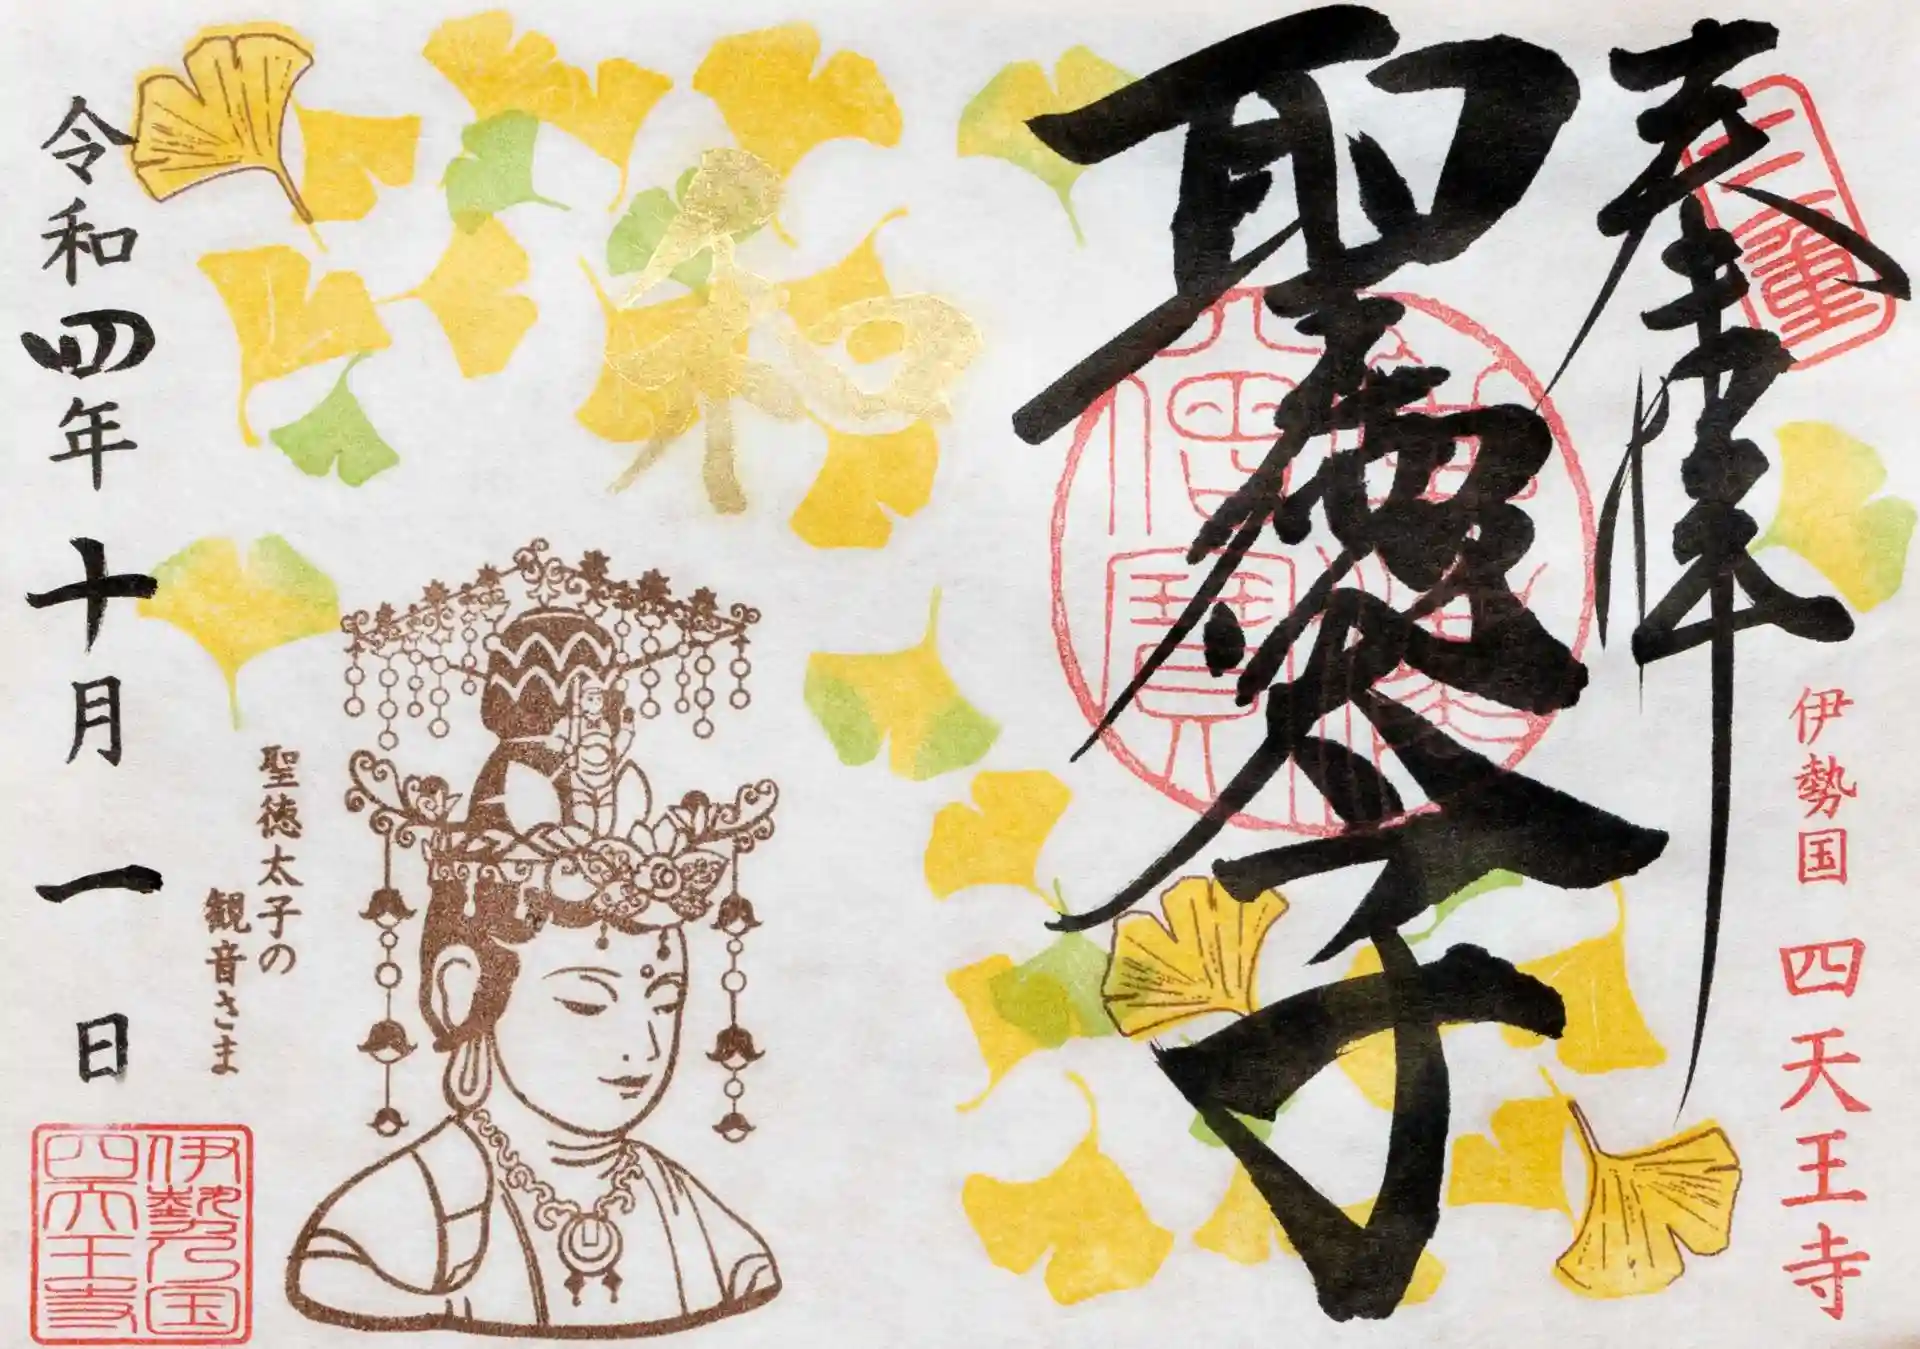 奉拝
三重
聖徳太子
佛法僧寶
伊勢国 四天王寺
和
聖徳太子の
観音さま
令和四年十月一日
伊勢国
四天王寺